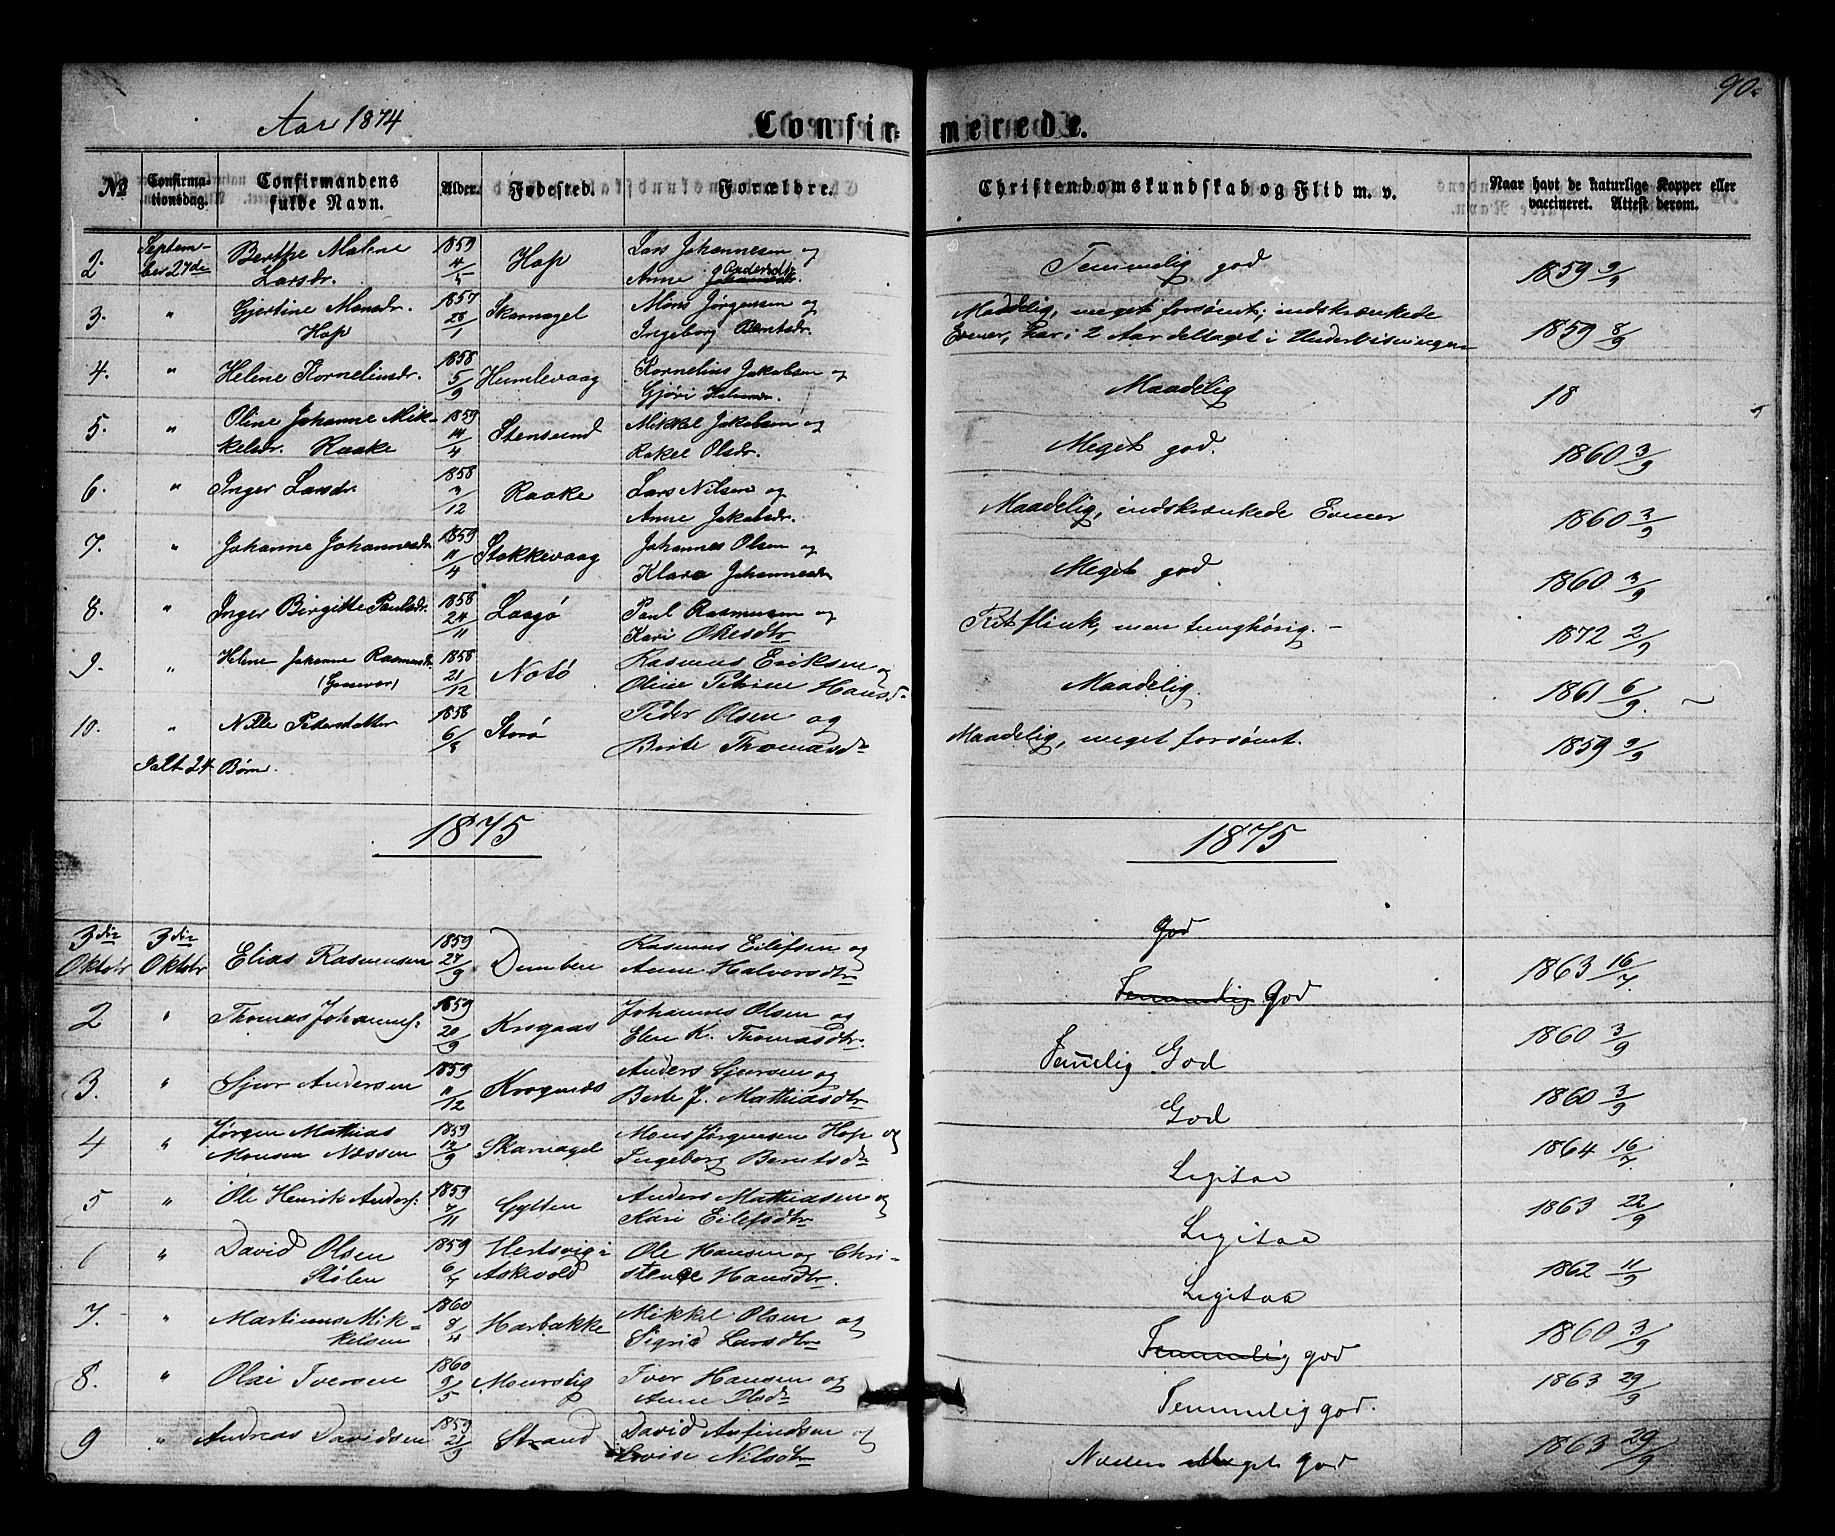 90.
Aar 1874
Confir-
merede.
No
Confirma-
tionsdag.
Confirmandens
fulde Navn.
Alder.
Fødested.
Forældre.
Christendomskundskab og Flid m. v.
Naar havt de naturlige Kopper eller
vaccineret. Attest derom.
2. Septem- Berthe Maline 1859 Hop Lars Johannesen og Temmelig god 1859 9/9
ber 27de Larsdr. 4/5 Anne Andersdtr. Johannesdr.
3. " Gjertine Monsdr. 1857 Skarvagel Mons Jørgensen og Maadelig, meget forsømt; indskrænkede
Hop 28/1 Ingeborg Berntsdr. Evner, har i 2 Aar deltaget i Underviisningen 1859 8/9
4. " Helene Korneliusdr. 1858 Humlevaag Kornelius Jakobsen og Maadelig 18
5/9 Gjøri
5. " Oline Johanne Mik- 1859 Stensund Mikkel Jakobsen og Meget god. 1860 3/9
kelsdr. Raake 14/4 Rakel Olsdr.
6. " Inger Larsdr. 1858 Raake Lars Nilsen og Maadelig, indskrænkede Evner 1860 3/9
3/12 Anne Jakobsdr.
7. " Johanne Johannesdr. 1859 Stokkevaag Johannes Olsen og Meget god. 1860 3/9
11/4 Klara Johannesdr
8. " Inger Birgitte Paulsdr. 1858 Laagø Paul Rasmussen og Ret flink, men tunghørig. - 1872 2/9
24/11 Kari Olesdtr
9. " Helene Johanne Rasmusdr. 1858 Notø Rasmus Eriksen og Maadelig. 1861 6/9.
(Gaasevær) 21/12 Oline Petrine Hansd.
10. " Nille Pedersdatter 1858 Storø Peder Olsen og Maadelig, meget forsømt. 1859 9/9
6/8 Berte Thomasdr
Ialt 24 Børn.
1875
1875
god
3die 3die Elias Rasmussen 1859 Dumben Rasmus Eilefsen og Temmelig god 1863 16/7
Oktobr Oktobr 24/9 Anne Halvorsdtr
2 " Thomas Johannes: 1859 Krogaas Johannes Olsen og Temelig God 1860 3/9
20/9 Elen K. Thomasdtr.
3. " Sjur Andersen 1859 Krogaas Anders Sjursen og God 1860 3/9
11/12 Berte J. Mathiasdtr
4 " Jørgen Mathias 1859 Skarvagel Mons Jørgensen Hop og Ligesaa 1864 16/7
Monsen Næssen 12/9 Ingeborg Berntsdr
5 " Ole Henrik Anders: 1859 Gylten Anders Mathiasen og Ligesaa 1863 22/9
7/11 Kari Eilefsdtr
6 " David Olsen 1859 Hertsvig i Ole Hansen og Chri- Ligesaa 1862 11/9
Stølen 6/7 Askevold stence Hansdtr.
7. " Martinus Mik- 1860 Harbakke Mikkel Olsen og Temmelig god 1860 3/9
kelsen 8/4 Sigrid Larsdtr
8. " Olai Iversen 1860 Mourstig Iver Hansen og Temmelig god. 1863 29/9
9/5 Anne Olsdr
9 " Andreas Davidsen 1859 Strand David Anfindsen og Næsten Meget god 1863 29/9
21/9 Lovise Nilsdtr